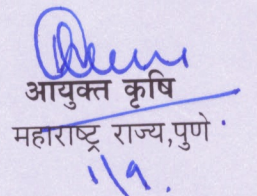 आयुक्त कृषि
महाराष्ट्र राज्य,पुणे
1/9.